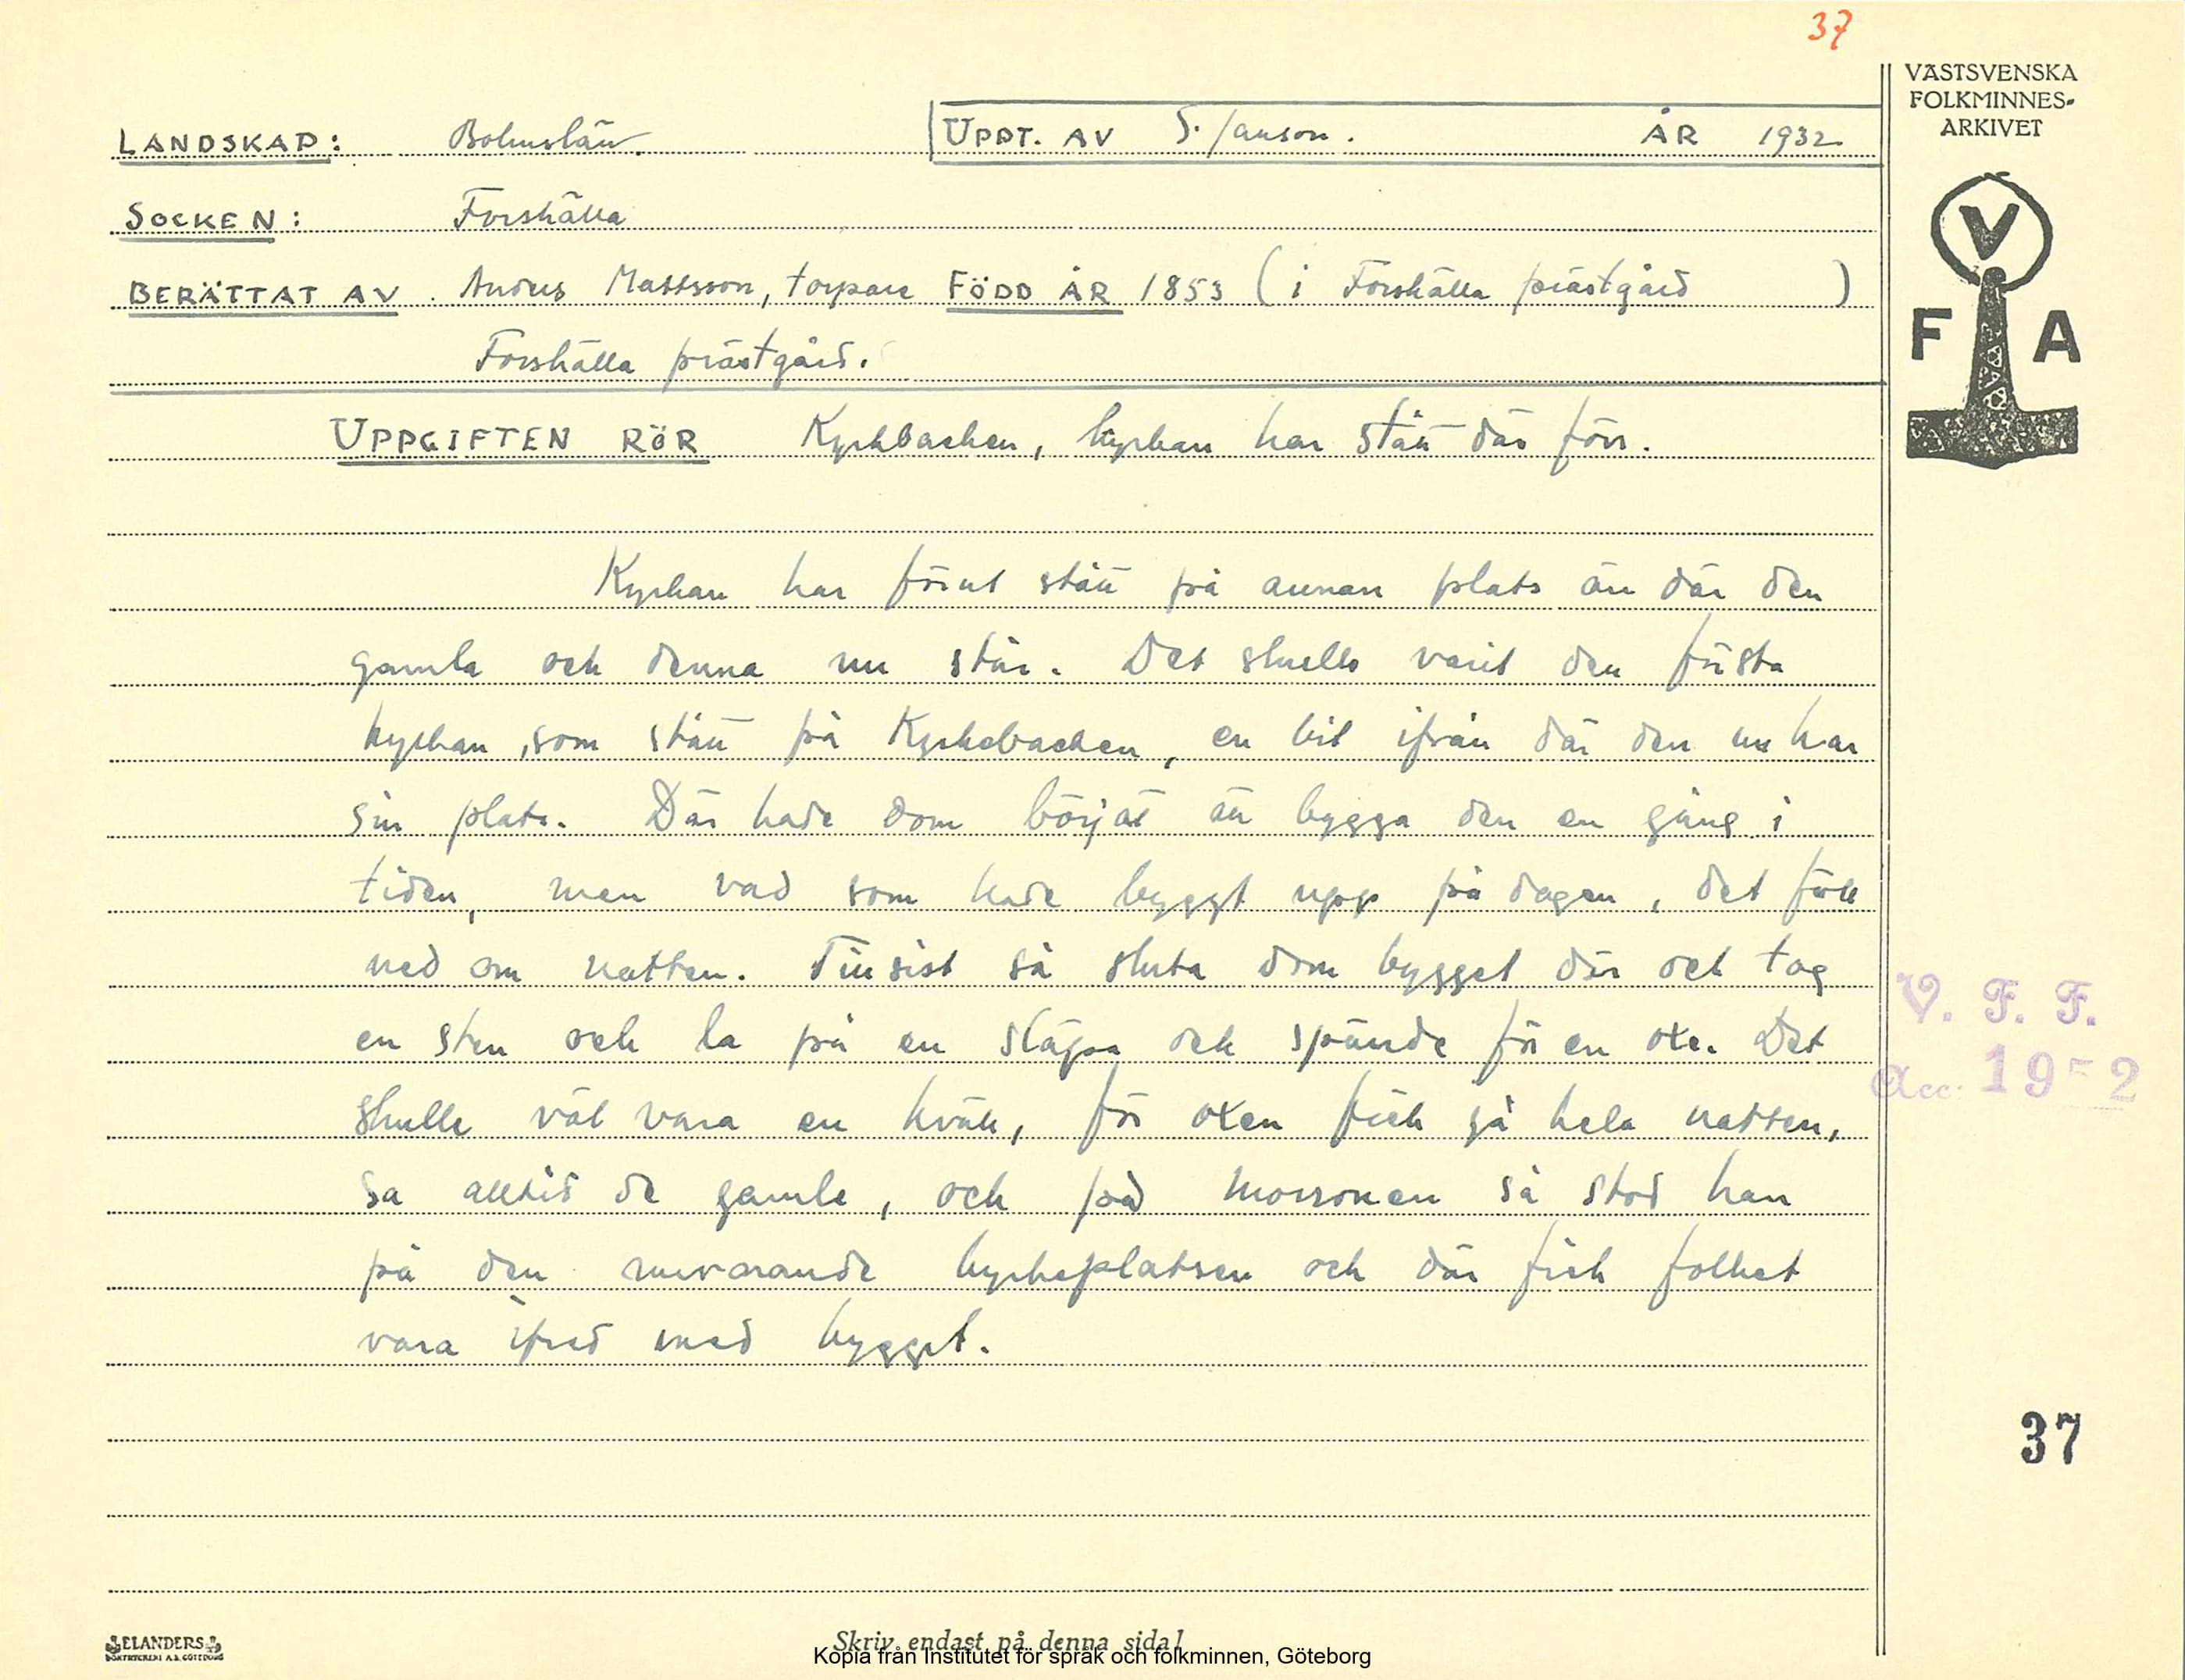 37
VÄSTSVENSKA
FOLKMINNES-
ARKIVET
LANDSKAP: Bohuslän. UPPT. AV S. Janson. ÅR 1932
SOCKEN: Forshälla
BERÄTTAT AV Anders Mattsson, torpare FÖDD ÅR 1853 (i Forshälla prästgård )
Forshälla prästgård.
V
F A
UPPGIFTEN RÖR Kyrkbacken, kyrkan har stått där förr.
Kyrkan har förut stått på annan plats än där den
gamla och denna nu står. Det skulle varit den första
kyrkan, som stått på Kyrkebacken, en bit ifrån där den nu har
sin plats. Där hade dom börjat att bygga den en gång i
tiden, men vad som hade byggt upp på dagen, det föll
ned om natten. Till sist så sluta dom bygget där och tog
en sten och la på en släpa och spände för en oxe. Det
skulle väl vara en kväll, för oxen fick gå hela natten,
sa alltid de gamle, och på morronen så stod han
på den nuvarande kyrkeplatsen och där fick folket
vara ifred med bygget.
V. F. F.
Acc. 19 2
37
ELANDERS
BOKTRYCKERI A.B. GÖTEBORG
Skriv endast på denna sida!
Kopia från Institutet för språk och folkminnen, Göteborg